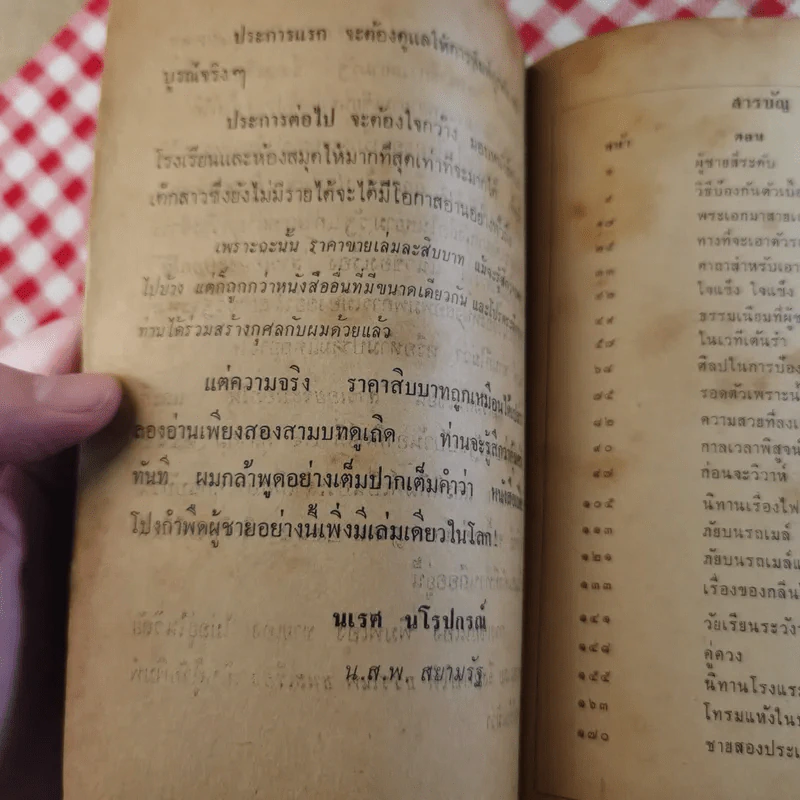 ประการแรก จะต้องดูแลให้การ
บูรณ์จริงๆ
ประการต่อไป จะต้องใจกว้าง
โรงเรียนและห้องสมุดให้มากที่สุดเท่าที่จะมากได้
เด็กสาวซึ่งยังไม่มีรายได้จะได้มีโอกาสอ่านอย่าง
เพราะฉะนั้น ราคาขายเล่มละสิบบาท แม้จะ
ไปบ้าง แต่ก็ถูกกว่าหนังสืออื่นที่มีขนาดเดียวกัน และโปรด
ท่านได้ร่วมสร้างกุศลกับผมด้วยแล้ว
แต่ความจริง ราคาสิบบาทถูกเหมือนได้
ลองอ่านเพียงสองสามบทดูเถิด ท่านจะรู้สึก
ทันที ผมกล้าพูดอย่างเต็มปากเต็มคำว่า หนังสือ
โป่งกำพืดผู้ชายอย่างนี้เพิ่งมีเล่มเดียวในโลก!
นเรศ นโรปกรณ์
น.ส.พ. สยามรัฐ
สารบัญ
หน้า ตอน
๑ ผู้ชายสี่ระดับ
วิธีป้องกันตัวเบื้อ
๑๗ พระเอกมาสาย
๒๕ ทางที่จะเอาตัวร
๓๓ คาถาสำหรับเอา
๔๒ ใจแข็ง ใจแข็ง
๔๙ ธรรมเนียมที่ผู้ช
๕๗ ในเวทีเต้นรำ
๖๔ ศิลปในการป้อง
๗๕ รอดตัวเพราะน้
๘๒ ความสวยที่ลง
๙๐ กาลเวลาพิสูจน์
๙๘ ก่อนจะวิวาห์
๑๐๕ นิทานเรื่องไฟ
๑๑๓ ภัยบนรถเมล์
๑๒๑ ภัยบนรถเมล์แ
๑๓๓ เรื่องของกลิ่น
๑๔๑ วัยเรียนระวัง
๑๔๘ คู่ควง
๑๕๕ นิทานโรงแร
๑๖๓ โทรมแห้งใน
๑๗๐ ชายสองประเ